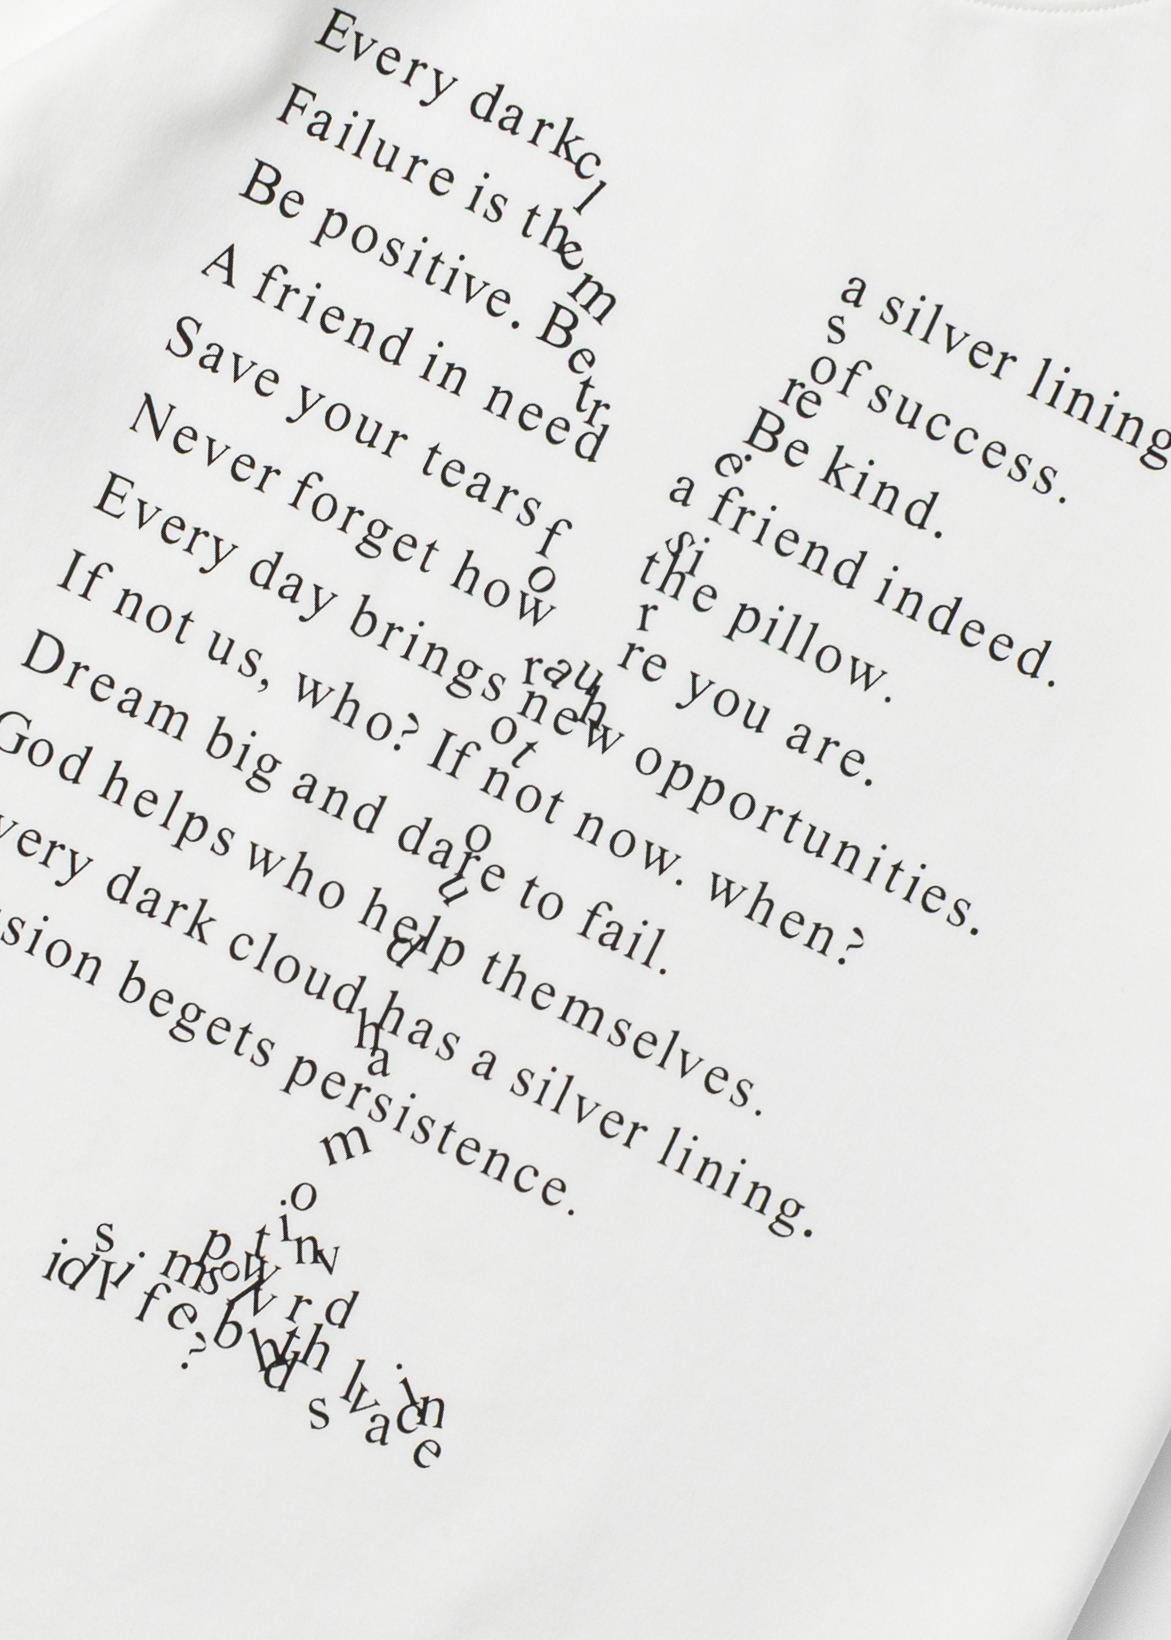 Every dark cl a silver lining
Failure is the m of success.
Be positive. Be Be kind.
A friend in need a friend indeed.
Save your tears the pillow.
Never forget how re you are.
Every day brings new opportunities.
If not us, who? If not now. when?
Dream big and dare to fail.
God helps who help themselves.
very dark cloud has a silver lining.
sion begets persistence.